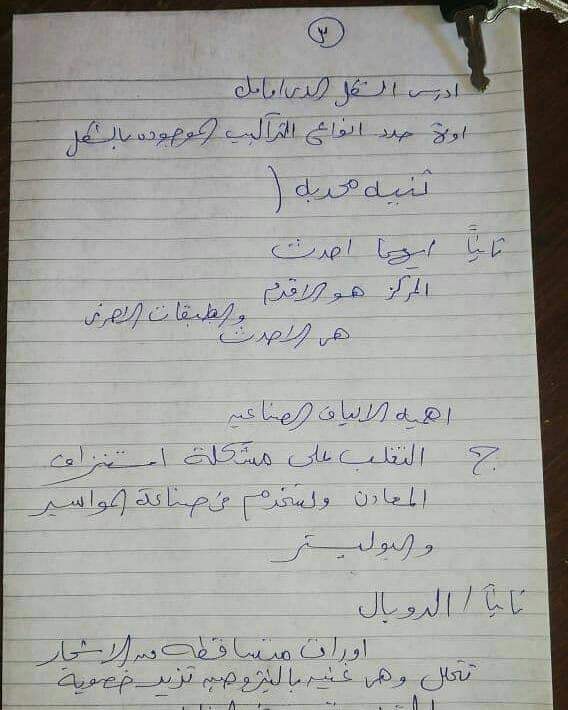 ٣
ادرس الشكل الذى امامك
اولا حدد انواع التراكيب الموجوده بالشكل
ثنيه محدبه (
ثانياً ايهما احدث
المركز هو الاقدم
والطبقات الاخرى
هى الاحدث
اهميه الالياف الصناعيه
ج التغلب على مشكلة استنزاف
المعادن وتستخدم فى صناعة المواسير
والبوليستر
ثانياً / الدوبال
اوراق متساقطه من الاشجار
تتحلل وهى غنيه بالنيتروجين تزيد خصوبة